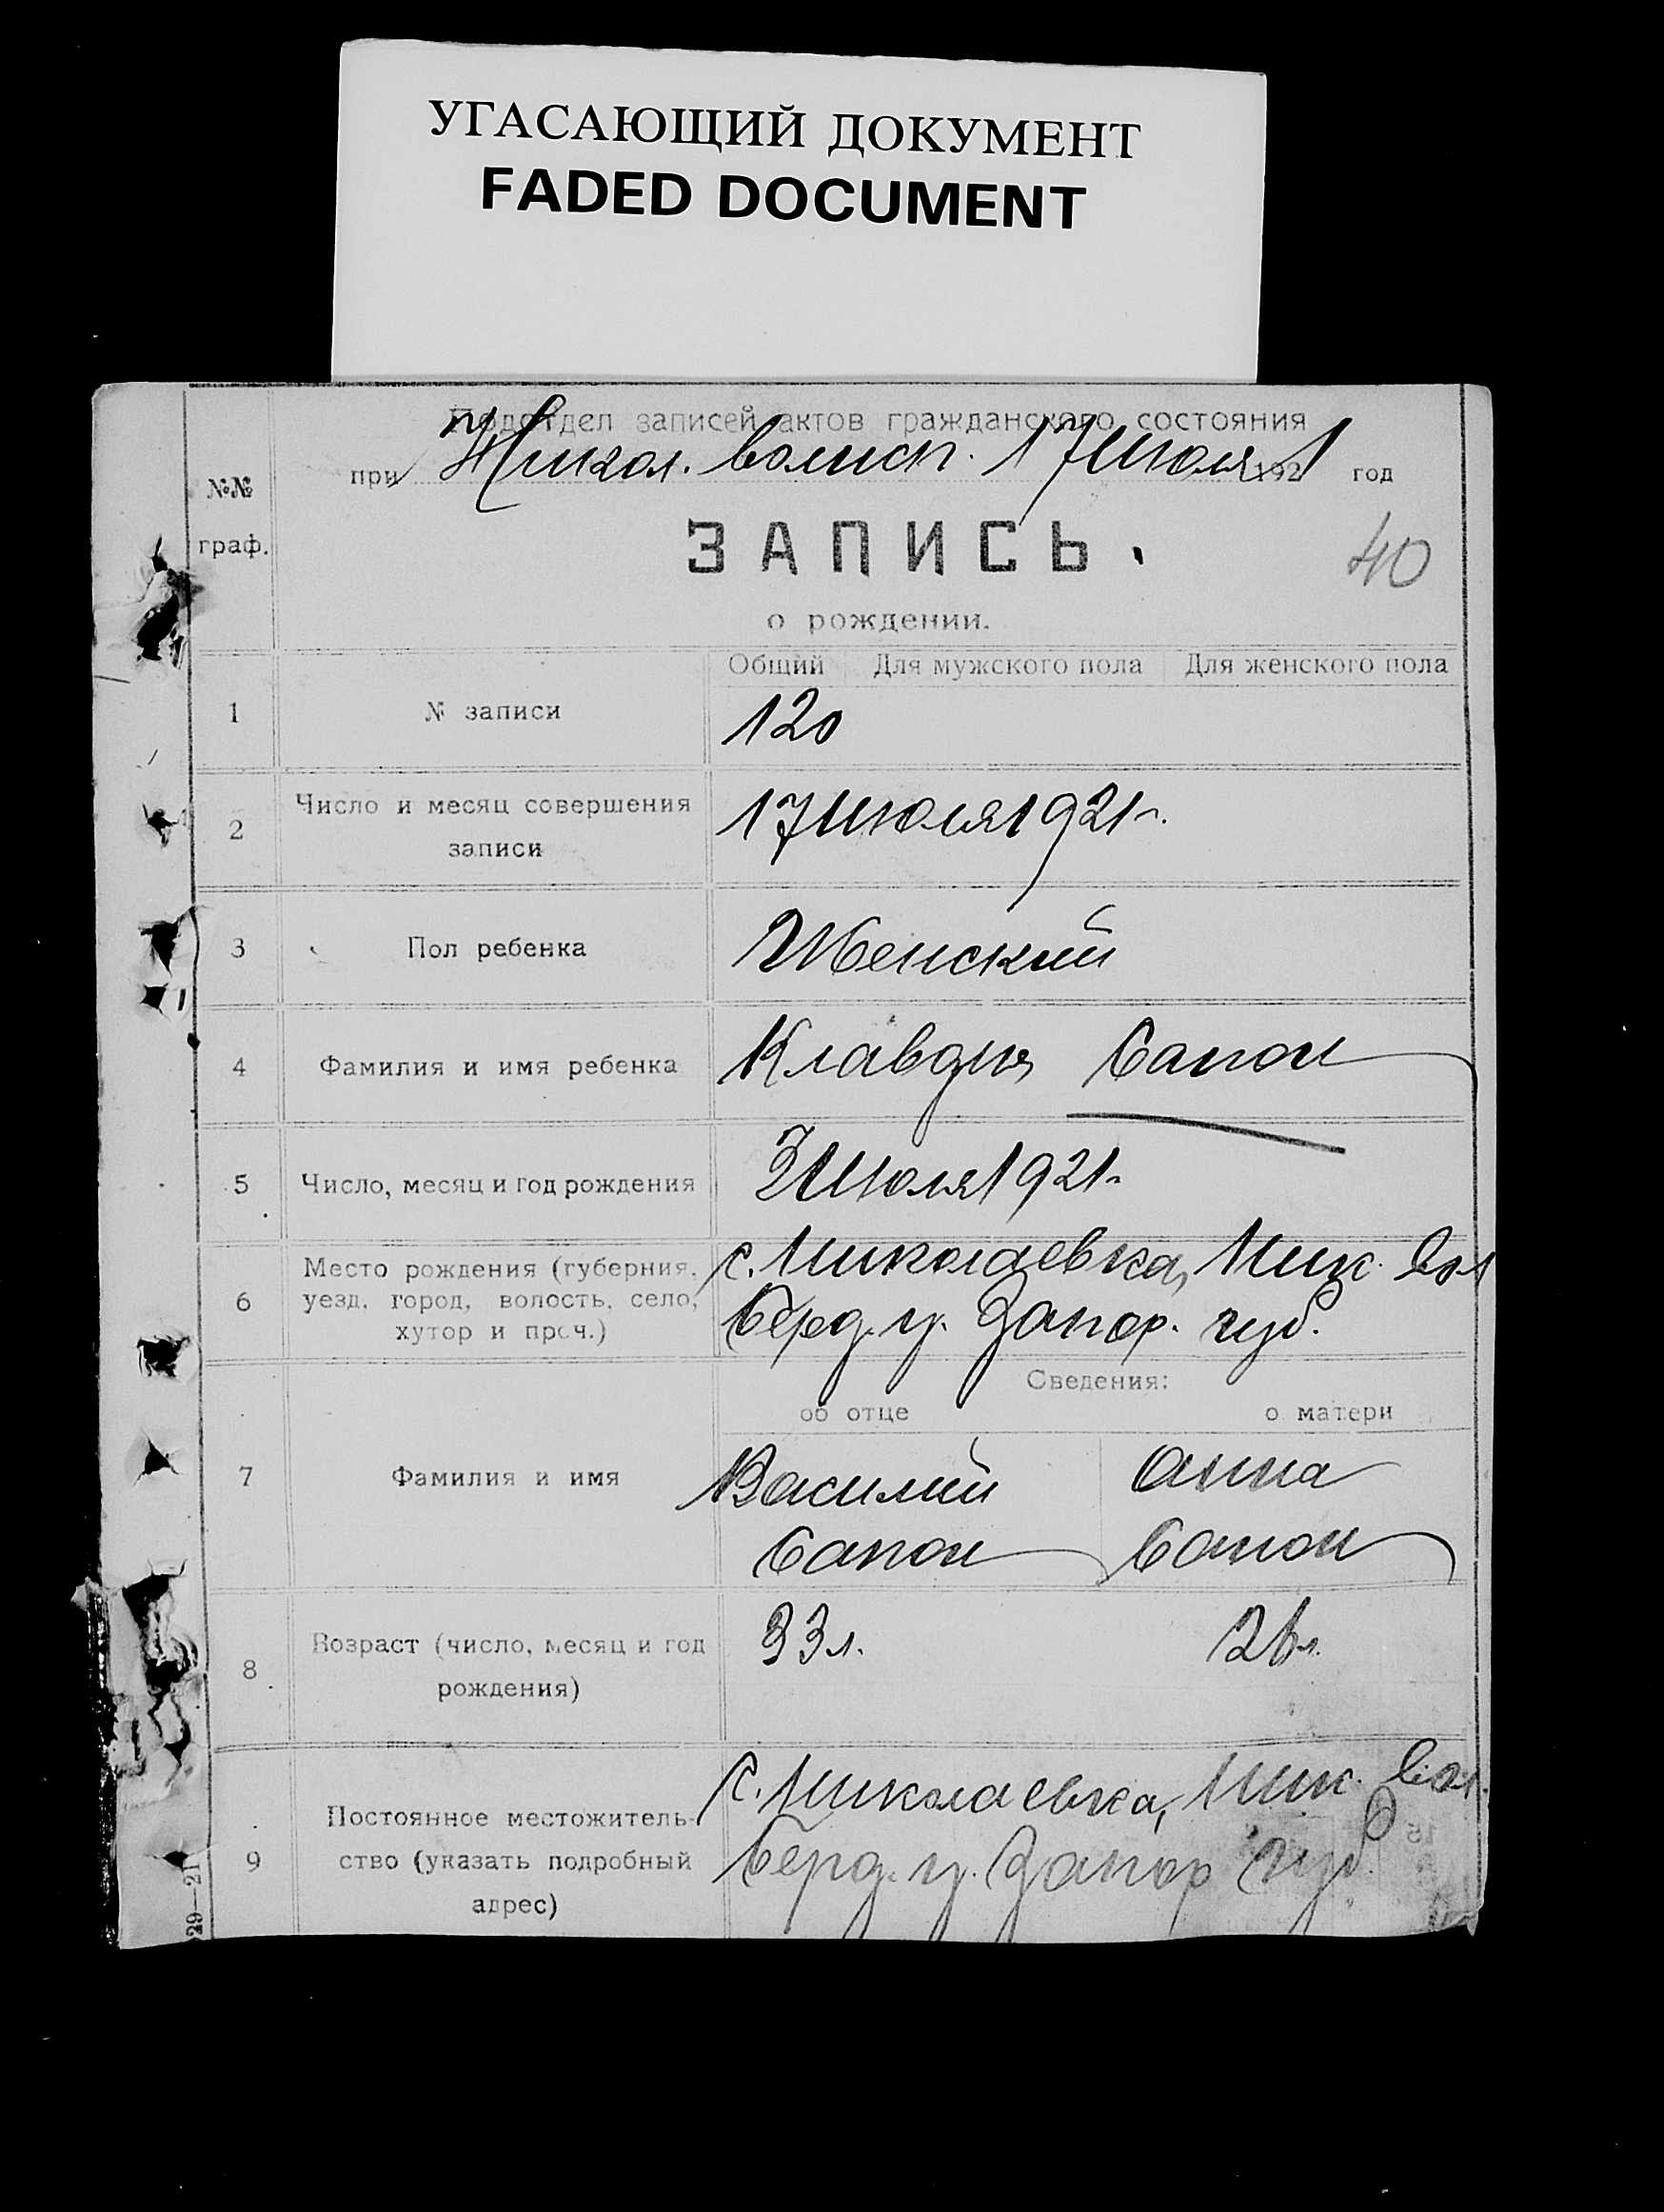 УГАСАЮЩИЙ ДОКУМЕНТ
FADED DOCUMENT
Подотдел записей актов гражданского состояния
при Никол. волисп. 17 Июля 1921 год
№№
граф.
ЗАПИСЬ
40
о рождении.
Общий Для мужского пола Для женского пола
1 № записи 120
2 Число и месяц совершения
записи
17 Июля 1921 г.
3 Пол ребенка Женский
4 Фамилия и имя ребенка Клавдия Сапон
5 Число, месяц и год рождения 3 Июля 1921 г.
6 Место рождения (губерния,
уезд, город, волость, село,
хутор и проч.)
с. Николаевка, Ник. вол
Берд. у. Запор. губ.
Сведения:
об отце о матери
7 Фамилия и имя
Василий Анна
Сапон Сапон
8 Возраст (число, месяц и год
рождения)
33 л. 26 л.
9 Постоянное местожитель-
ство (указать подробный
адрес)
с. Николаевка, Ник. вол.
Берд. у. Запор губ.
29—21